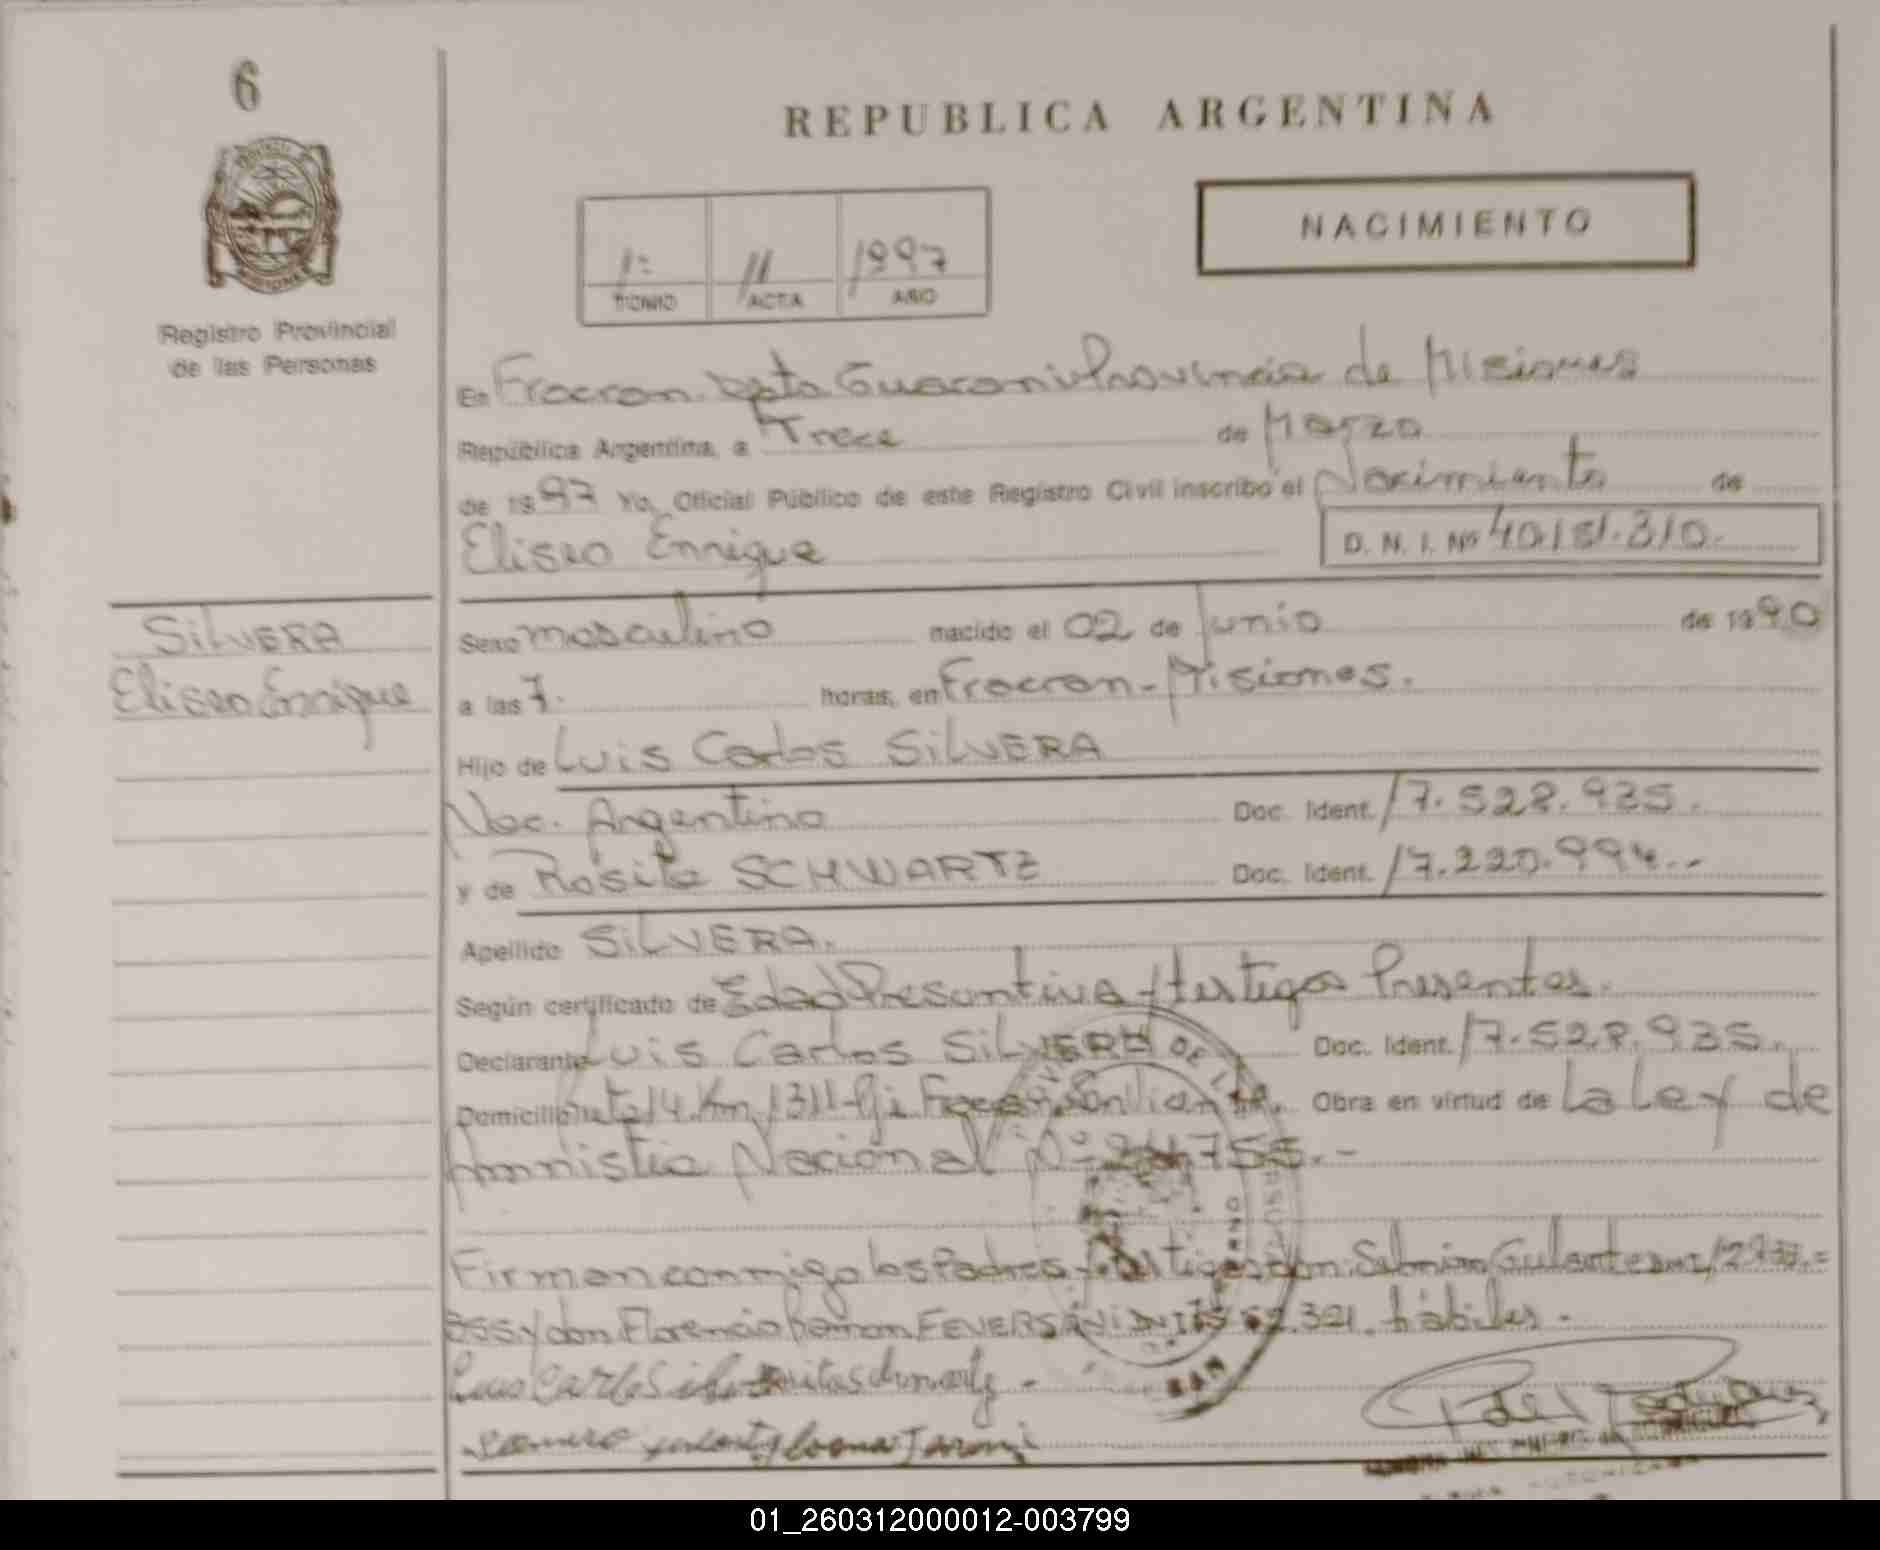 6
REPUBLICA ARGENTINA
NACIMIENTO
1º 11 1997
TOMO ACTA AÑO
Registro Provincial
de las Personas
En Fracran Dpto Guarani Provincia de Misiones
República Argentina, a Trece de Marzo
de 1997 Yo, Oficial Público de este Registro Civil inscribo el Nacimiento de
Eliseo Enrique D. N. I. Nº 40.181.310.
SILVERA
Eliseo Enrique
Sexo masculino nacido el 02 de Junio de 1990
a las 7. horas, en Fracran - Misiones.
Hijo de Luis Carlos SILVERA
Nac. Argentino Doc. Ident. 17.528.935.
y de Rosita SCHWARTZ Doc. Ident. 17.220.994.-
Apellido SILVERA.
Según certificado de Edad Presuntiva y testigos Presentes.
Declarante Luis Carlos SILVERA Doc. Ident. 17.528.935.
Domicilio Ruta 14 Km 1311 Fracran San Obra en virtud de La Ley de
Amnistia Nacional Nº 24755.-
Firman conmigo los Padres y testigos don
y don Florencio Ramon 321. hábiles.-
Luis Carlos
01_260312000012-003799